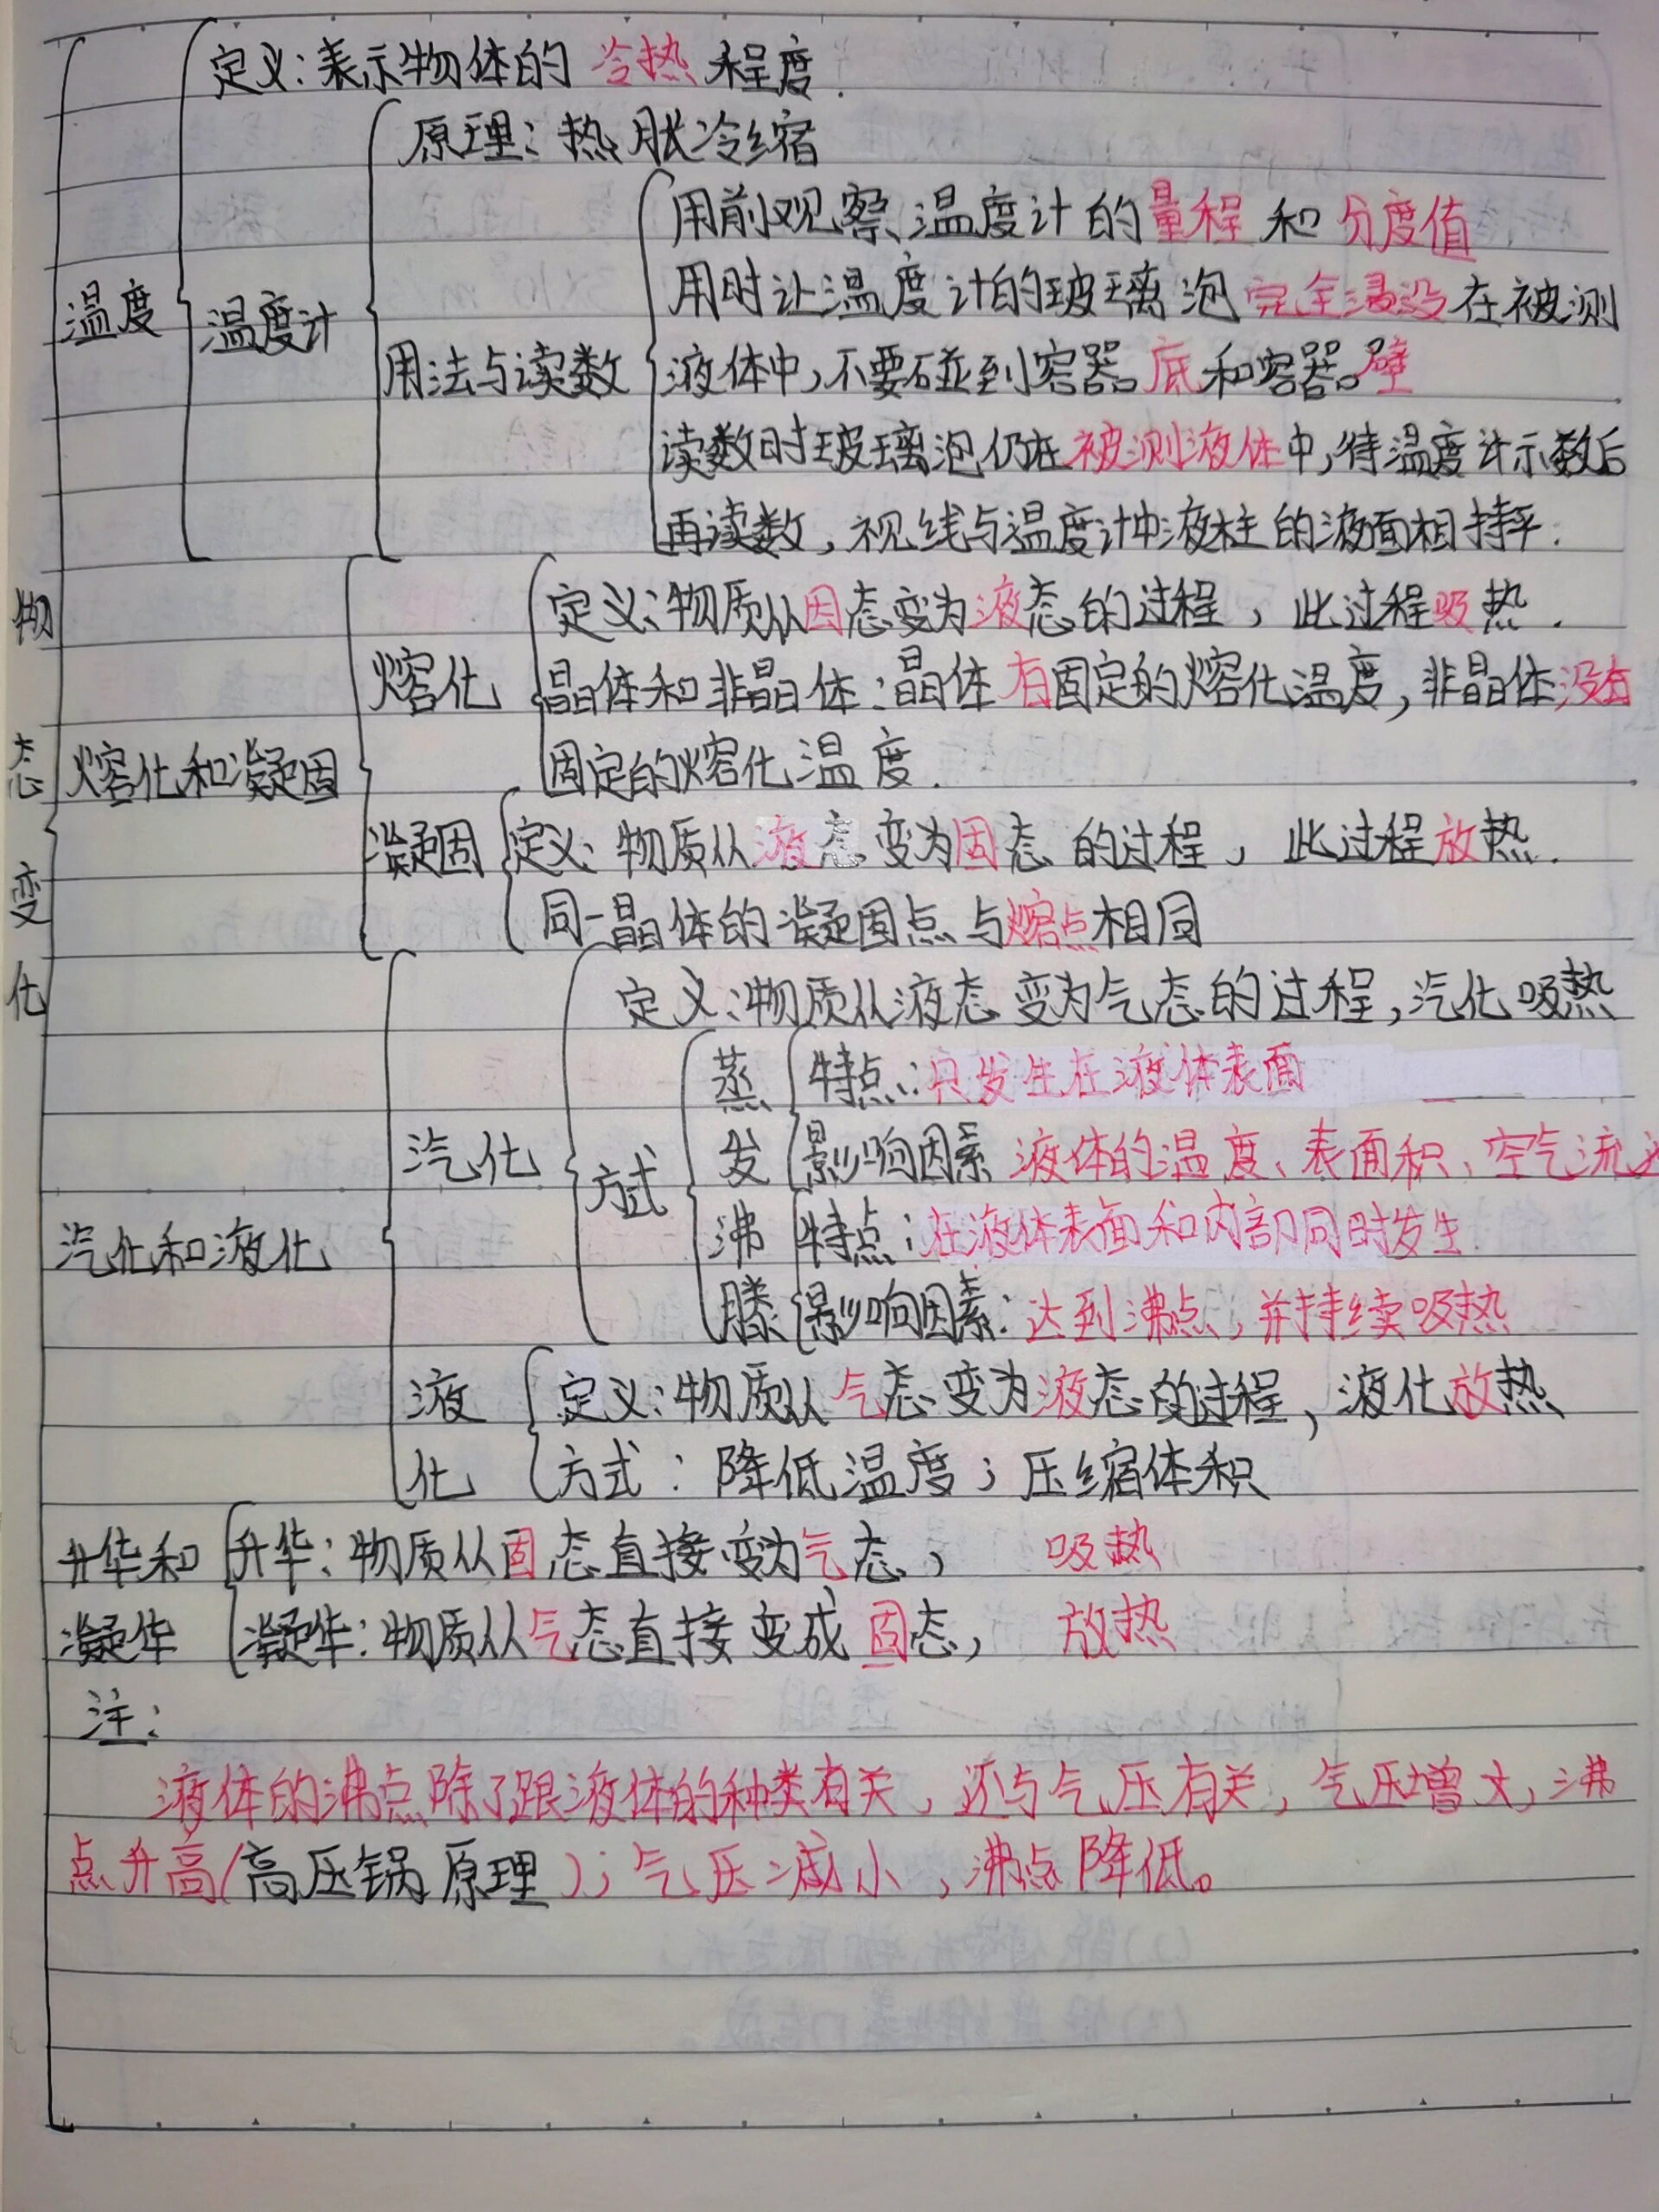 定义:表示物体的冷热程度.
原理:热胀冷缩
用前观察温度计的量程和分度值
用时让温度计的玻璃泡完全浸没在被测
温度
温度计
用法与读数
液体中,不要碰到容器底和容器壁
读数时玻璃泡仍在被测液体中,待温度计示数后
再读数,视线与温度计中液柱的液面相持平.
物态变化
定义:物质从固态变为液态的过程,此过程吸热.
熔化
晶体和非晶体:晶体有固定的熔化温度,非晶体没有
固定的熔化温度.
熔化和凝固
凝固
定义:物质从液态变为固态的过程,此过程放热.
同一晶体的凝固点与熔点相同
定义:物质从液态变为气态的过程,汽化吸热
汽化
方式
蒸发
特点:只发生在液体表面
影响因素 液体的温度、表面积、空气流
汽化和液化
沸腾
特点:在液体表面和内部同时发生
影响因素:达到沸点,并持续吸热
液化
定义:物质从气态变为液态的过程,液化放热
方式:降低温度;压缩体积
升华和凝华
升华:物质从固态直接变为气态, 吸热
凝华:物质从气态直接变成固态, 放热
注:
液体的沸点除了跟液体的种类有关,还与气压有关,气压增大,沸
点升高(高压锅原理);气压减小,沸点降低。